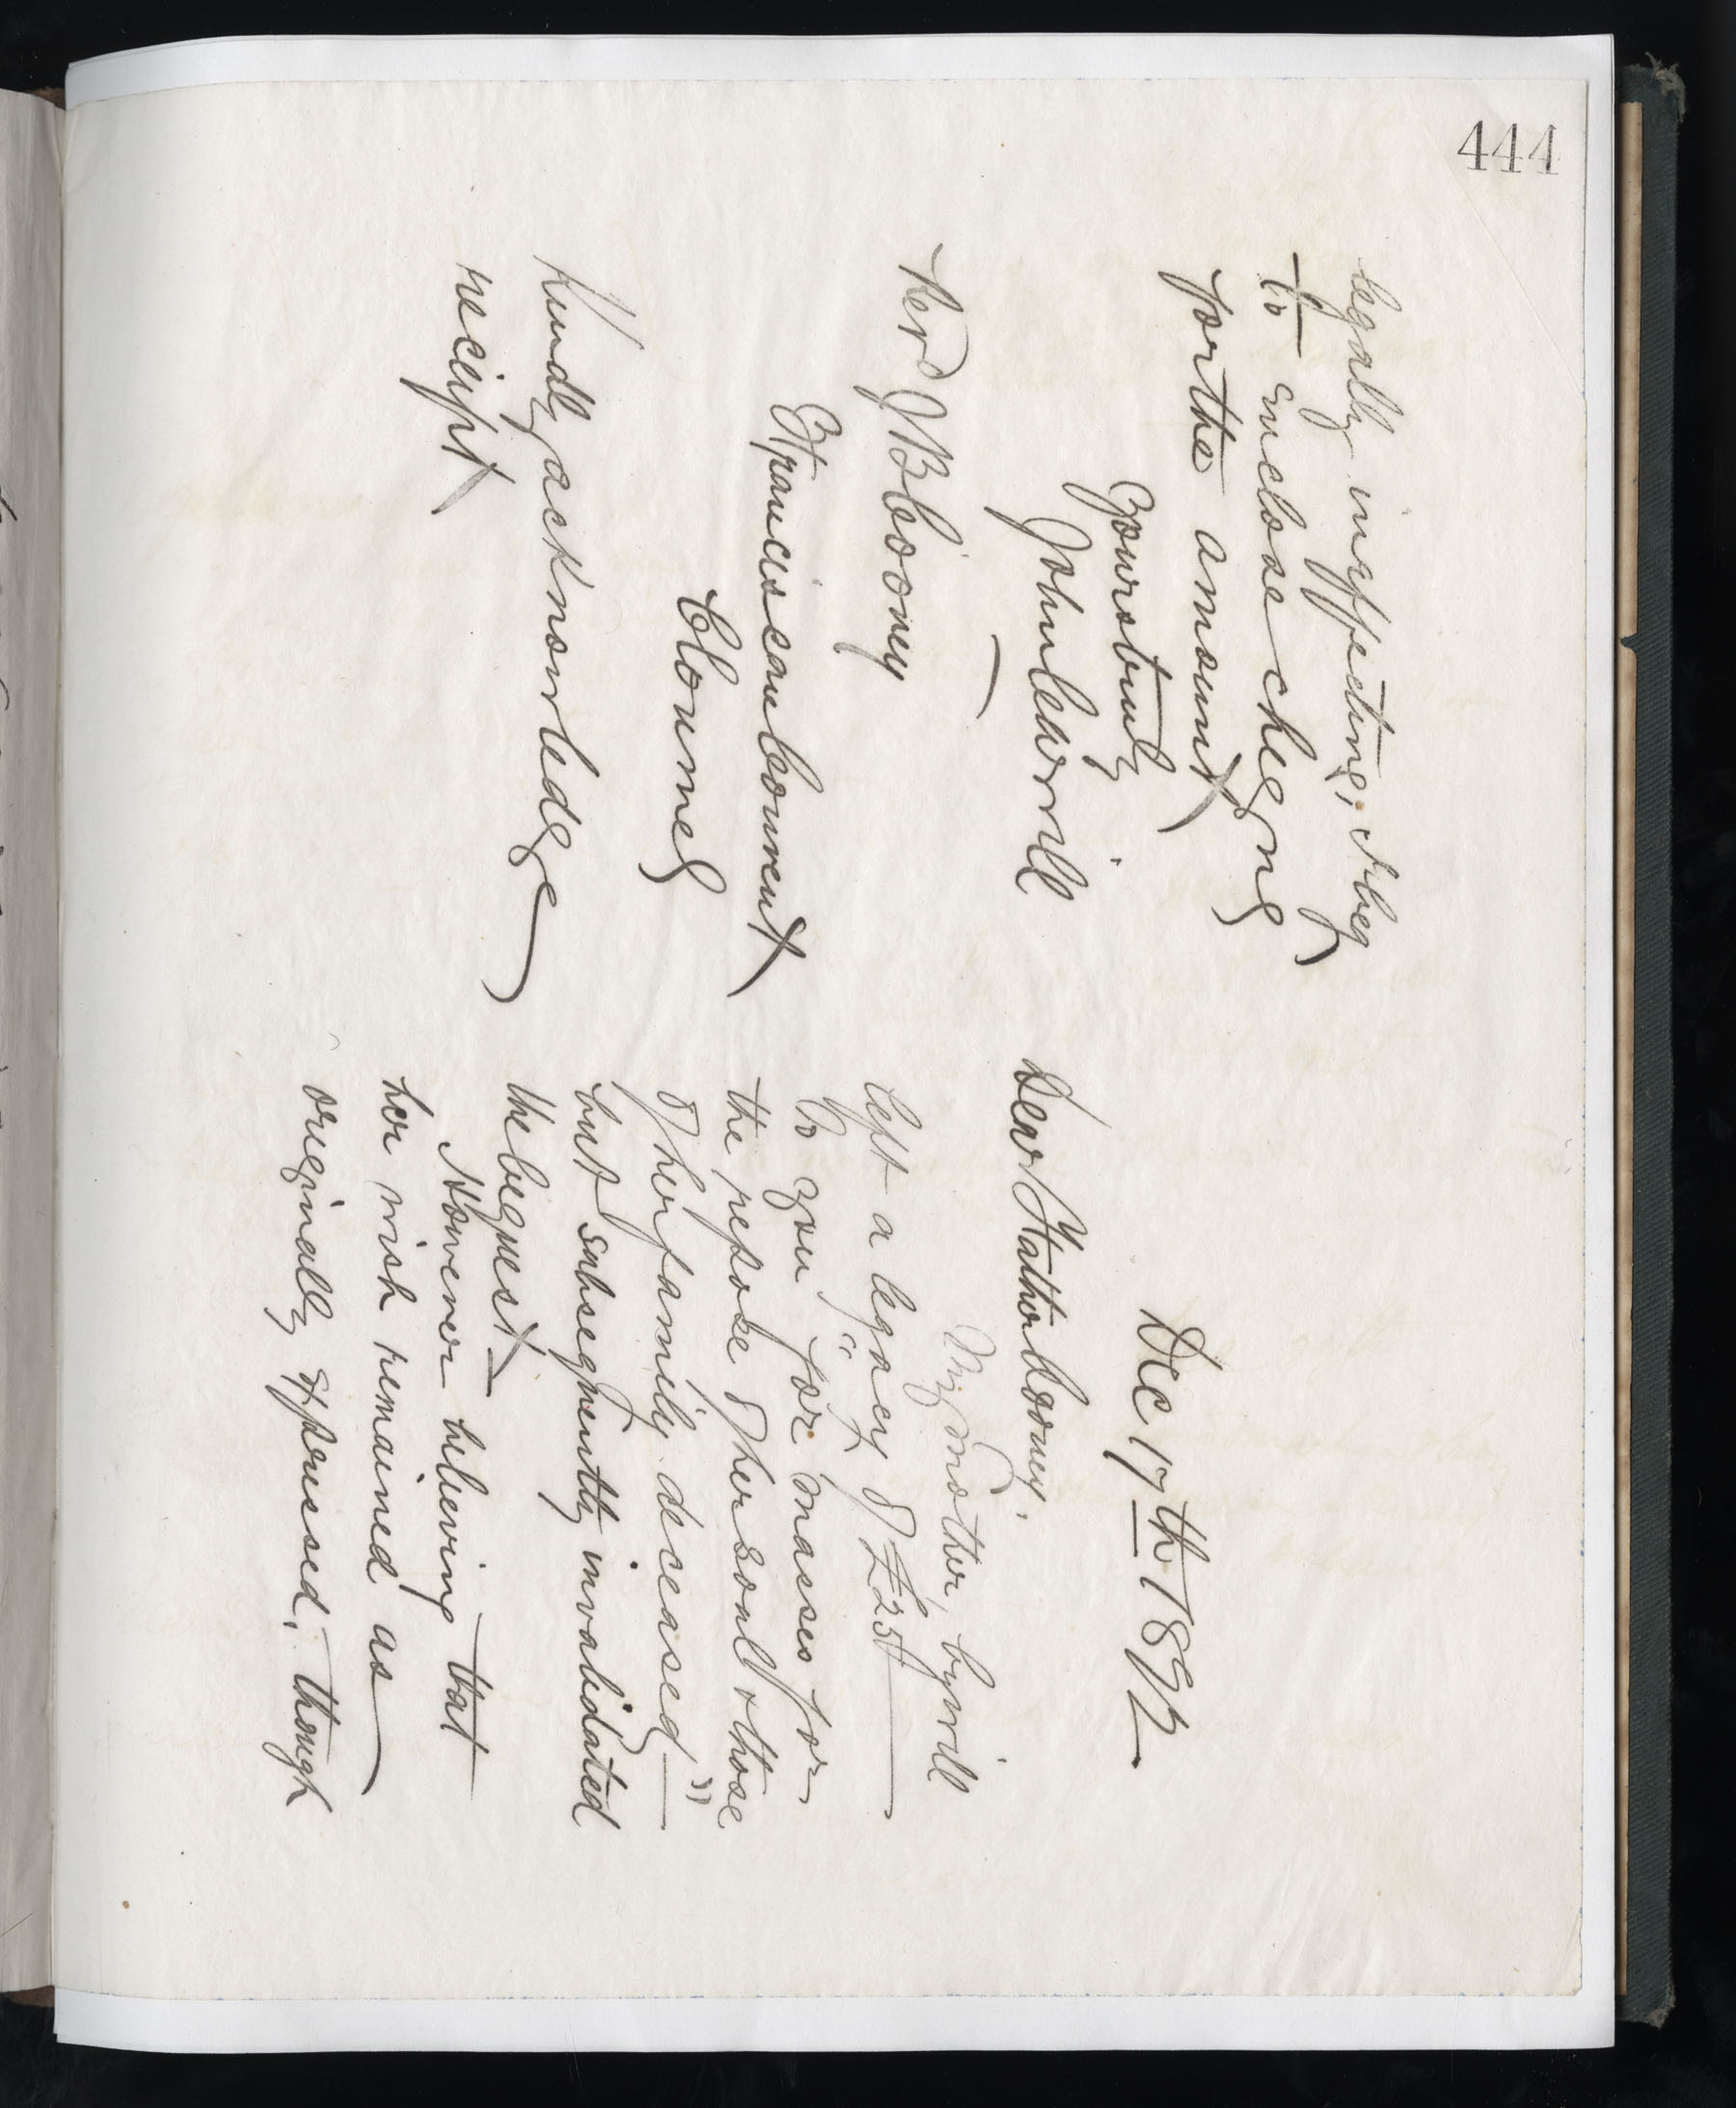 444
Dec 17th 1892
Dear Father Cooney,
My mother, by will
left a legacy of £25
to you "for masses for
the repose of her soul & those
of her family deceased"
but subsequently invalidated
the bequest
However believing that
her wish remained as
originally expressed, though
legally ineffective, I beg
to enclose cheque
for the amount
Yours truly
John Carvill
Revd J B Cooney
Franciscan Convent
Clonmel
Kindly acknowledge
receipt